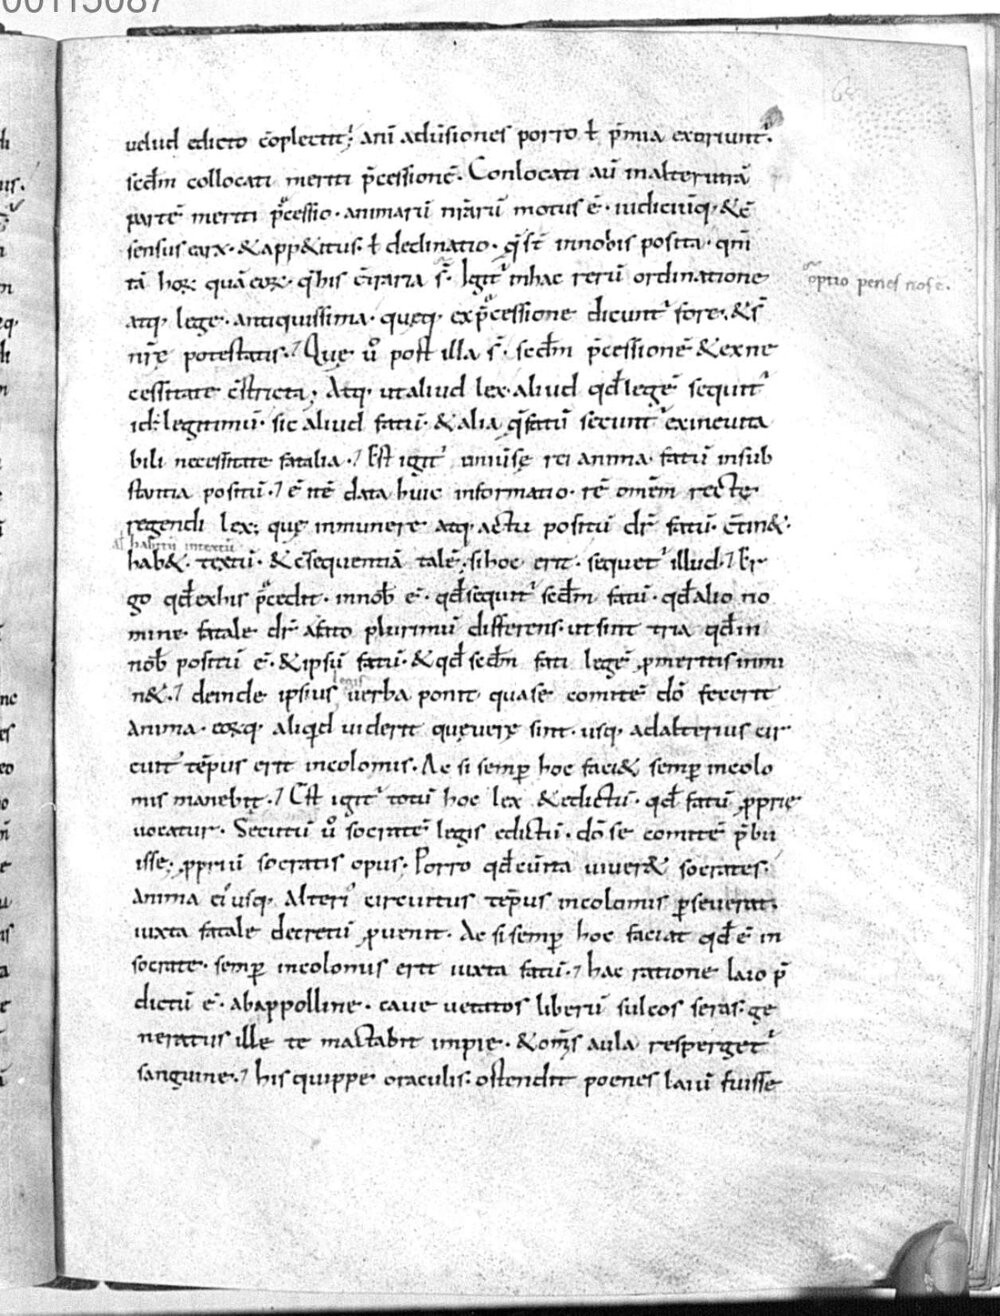 00115087
uelud edicto cōplectit᷒; ani aduīsiones porro ł p̄mia exoriunt᷒.
scd̄m collocati meriti p̄cessionē. Conlocati aū inalterutrā
partē meriti p̄cessio · animarū nr̄arū motus ē · iudiciūq; &ē
sensus earꝝ · & app&itus · ł declinatio · q̄ st̄ innobis posita · qm̄
tā hoꝝ quā eoꝝ · q̄ his c̄traria s̄ · Igit᷒ inhac rerū ordinatione
optio penes nos e.
atq; lege · antiquissima · quęq; exp̄cessione dicunt᷒ fore · & s̄
nr̄ę potestatis. Que u͛o post illa s̄ · scd̄m p̄cessionē & exne
cessitate c̄stricta; Atq; ut aliud lex · aliud qd̄ legē sequit᷒
id: legitimū · sic aliud fatū · & alia q̄ fatū secunt᷒ exineuita
bili necessitate fatalia. Est igit᷒ uniūsę rei anima · fatū insub
stantia positū · ē itē data huic informatio · rē omēm recte
regendi lex; quę inmunere atq; actu positū dr̄ fatū · c̄tin&·
al habitū intextū
hab& · textū · & c̄sequentiā talē · si hoc erit · sequet᷒ illud. Er
go qd̄ exhis p̄cedit · innob̄ ē · qd̄ sequit᷒ scd̄m fatū · qd̄ alio no
mine · fatale dr̄ afato plurimū differens · ut sint tria qd̄ in
nob̄ positū ē · & ipsū fatū · & qd̄ scd̄m fati legē ꝓmeritis inmi
n&. deinde ipsius legis uerba ponit quase comitē dō fecerit
anima · eoꝝq; aliqd uiderit quęuerę sint · usq; adalterius cir
cuit᷒ tēpus erit incolomis. Ac si semꝑ hoc faci& semꝑ incolo
mis manebit. Est igit᷒ totū hoc lex & edictū · qd̄ fatū ꝓprie
uocatur. Secutū u͛o socratē legis edictū · dō se comitē p̄bu
isse; ꝓpriū socratis opus. Porro qd̄ cū ita uiuer& socrates.
Anima ei᷒ usq; Alteri᷒ circuitus tēpus incolomis ꝑseuerat;
iuxta fatale decretū ꝓuenit. Ac si semꝑ hoc faciat qd̄ ē in
socrate · semꝑ incolomis erit iuxta fatū. hac ratione laio p̄
dictū ē · abappolline · caue uetitos liberū sulcos seras · ge
neratus ille te mactabit impie · & om̄s aula resperget᷒
sanguine. his quippe oraculis · ostendit poenes laiū fuisse